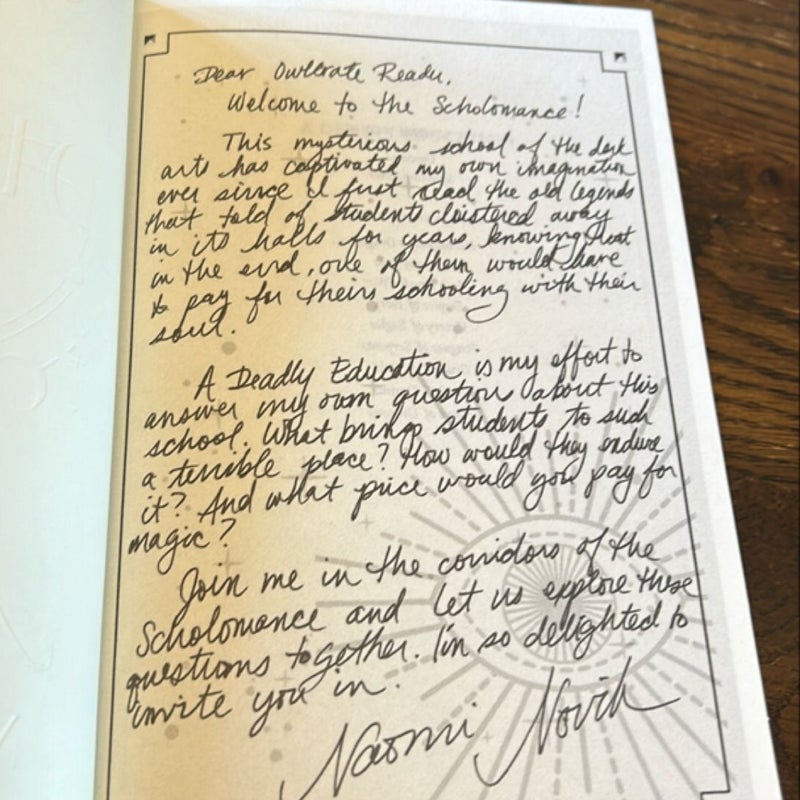 Dear Owlcrate Reader,
Welcome to the Scholomance!
This mysterious school of the dark
arts has captivated my own imagination
ever since I first read the old legends
that told of students cloistered away
in its halls for years, knowing that
in the end, one of them would have
to pay for theirs schooling with their
soul.
A Deadly Education is my effort to
answer my own question about this
school. What brings students to such
a terrible place? How would they endure
it? And what price would you pay for
magic?
Join me in the corridors of the
Scholomance and let us explore these
questions together. I'm so delighted to
invite you in.
Naomi Novik